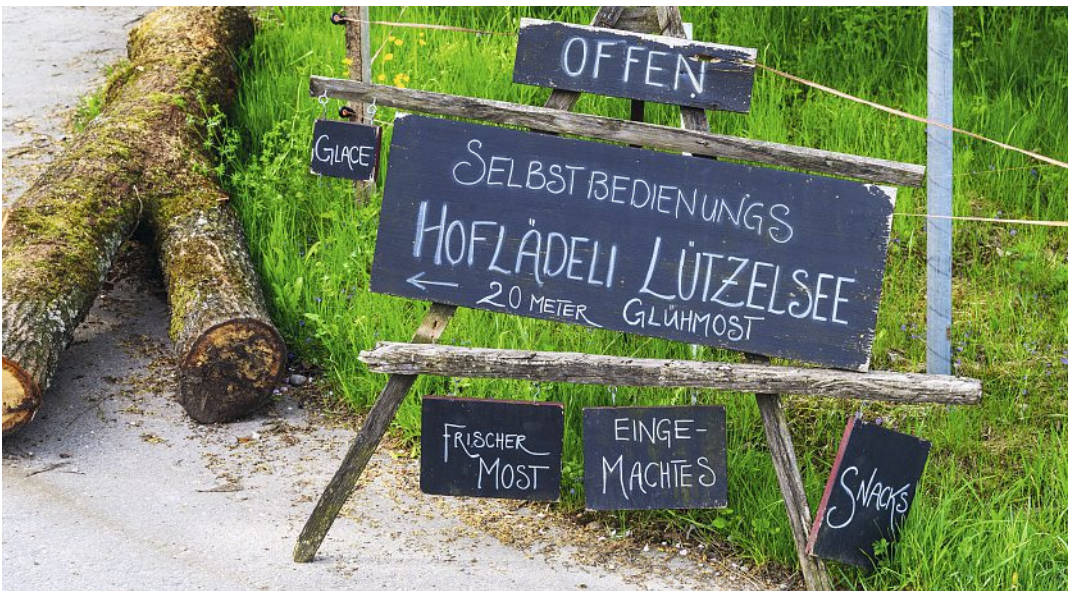 OFFEN
GLACE
SELBSTBEDIENUNGS
HOFLÄDELI LÜTZELSEE
← 20 METER GLÜHMOST
FRISCHER
MOST
EINGE-
MACHTES
SNACKS